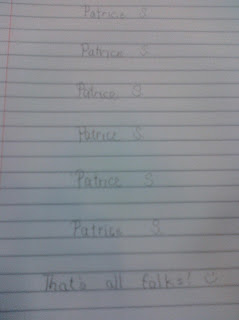 Patrice S.
Patrice S.
Patrice S.
Patrice S.
Patrice S.
Patrice S.
That's all folks! ☺